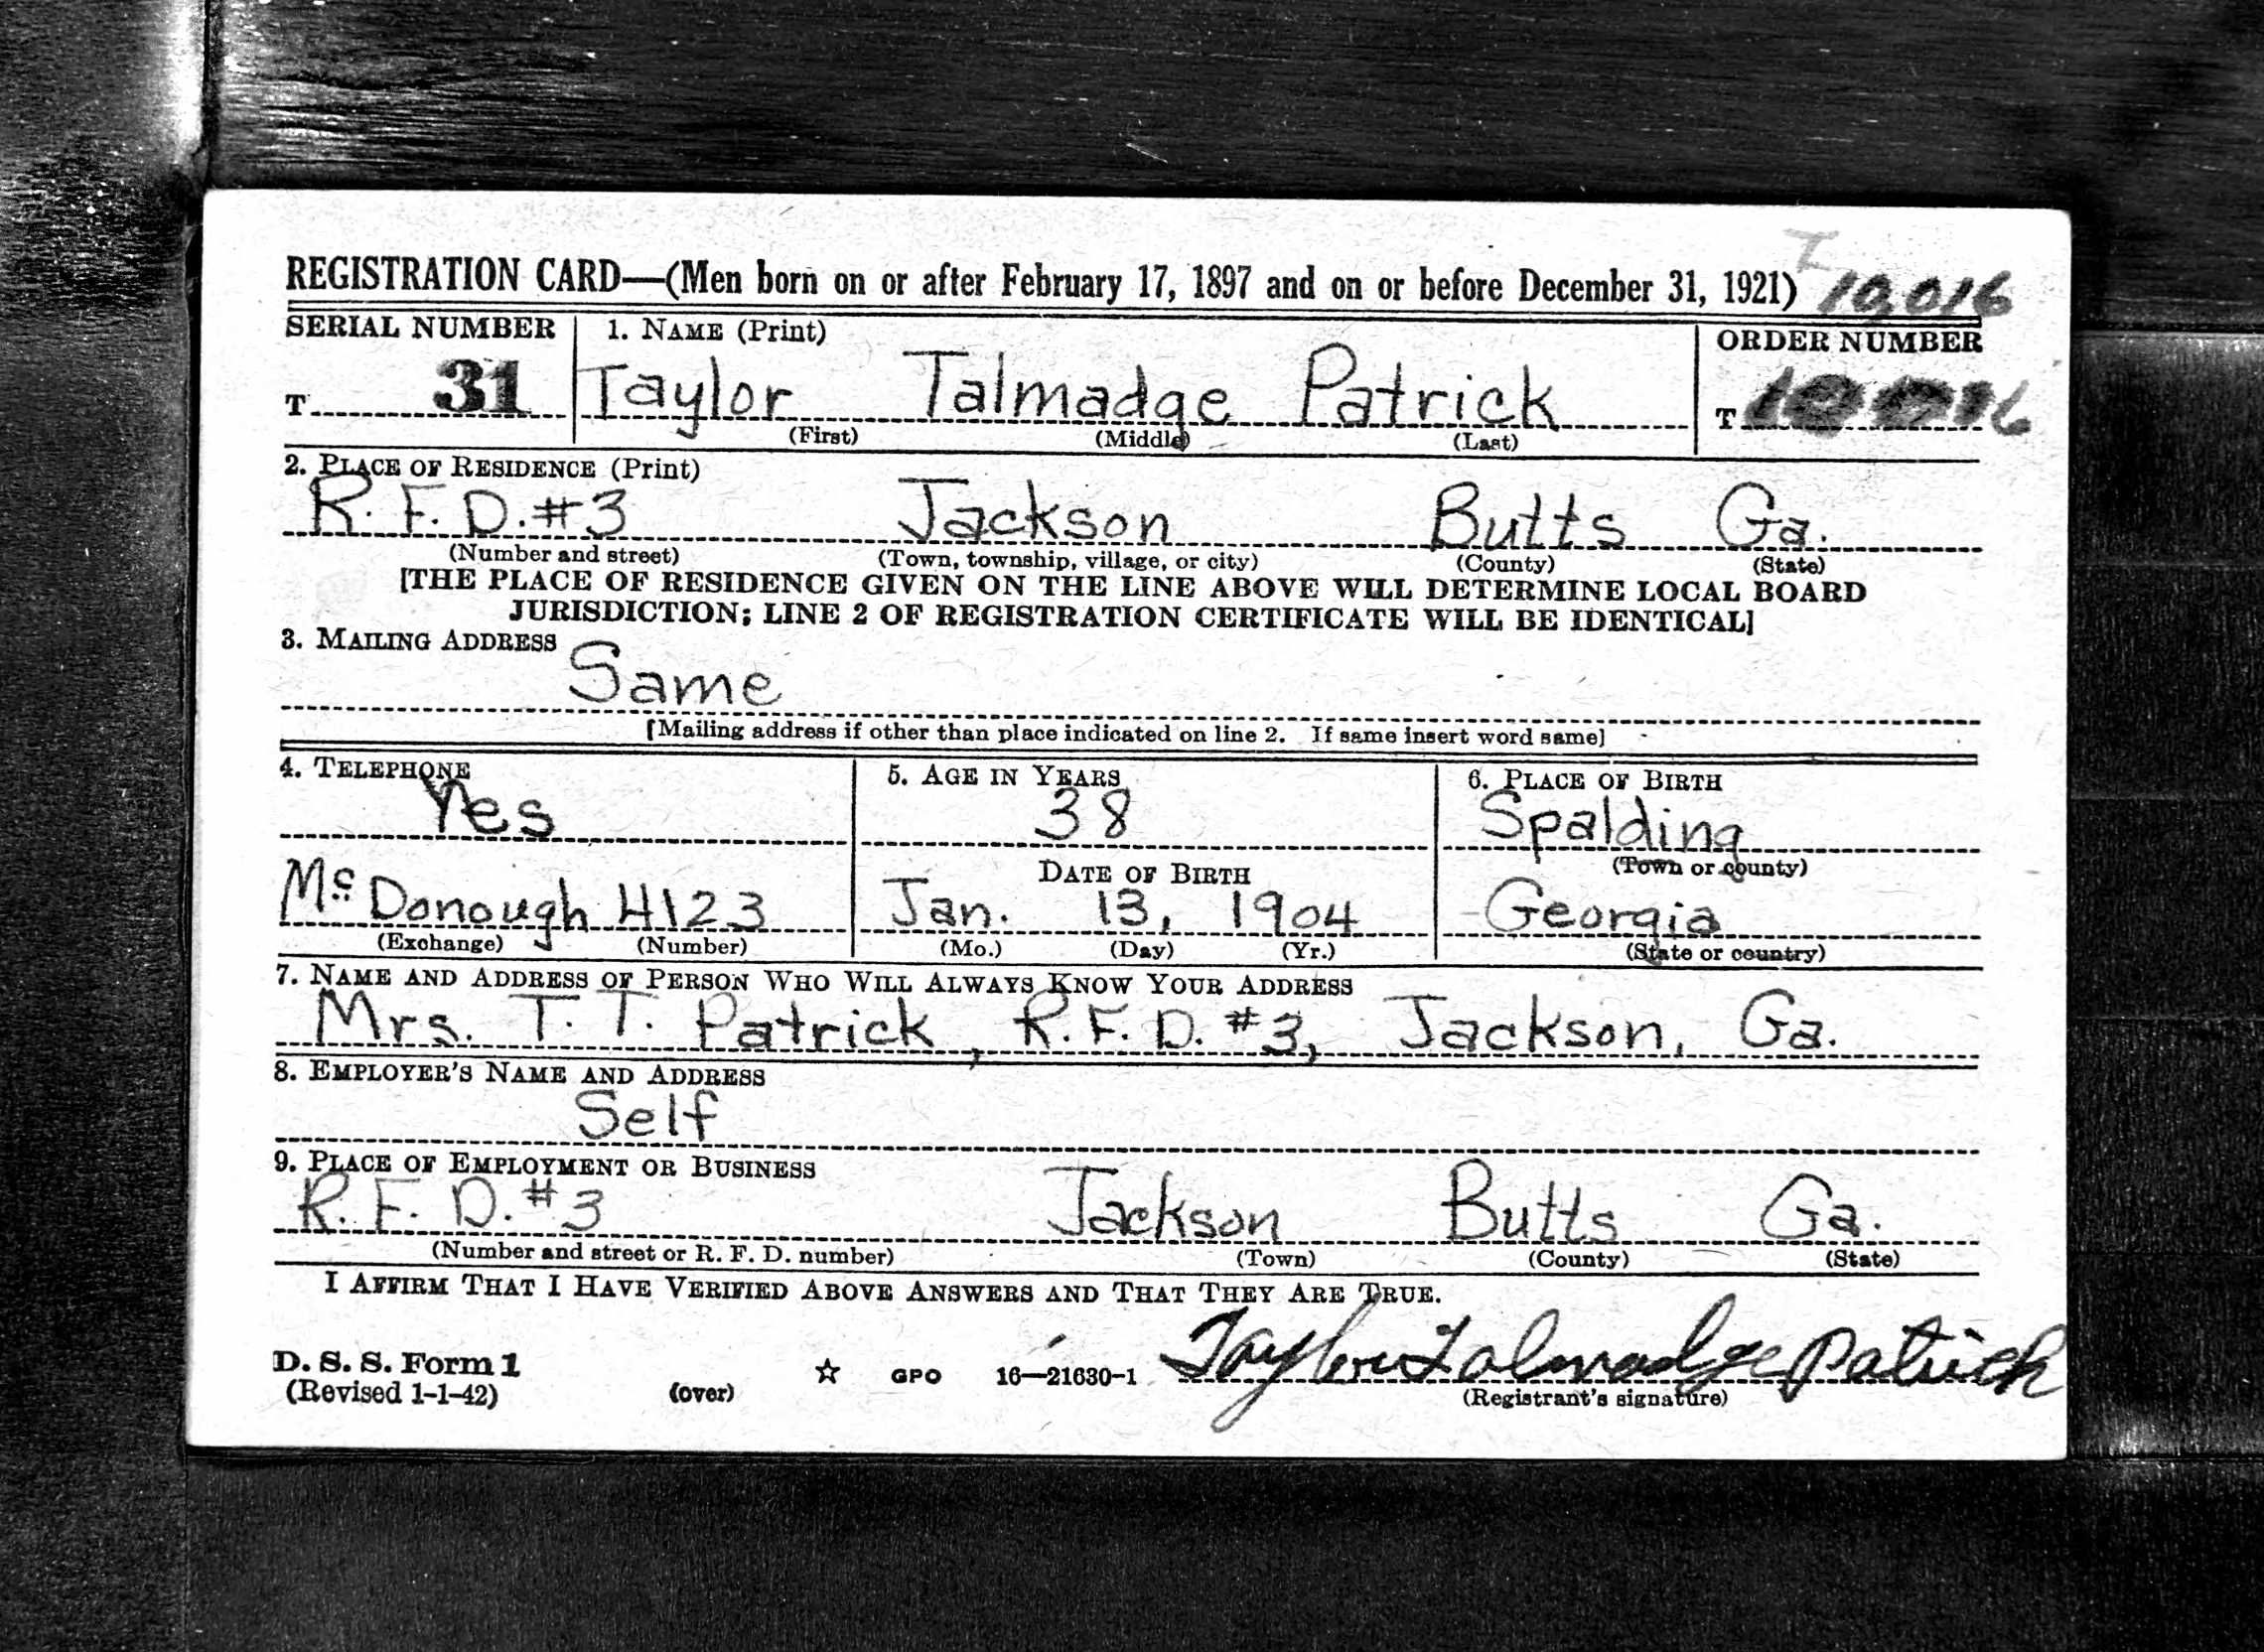 REGISTRATION CARD—(Men born on or after February 17, 1897 and on or before December 31, 1921) T 10,016
SERIAL NUMBER 1. NAME (Print) ORDER NUMBER
T 31 Taylor Talmadge Patrick T
(First) (Middle) (Last)
2. PLACE OF RESIDENCE (Print)
R. F. D. #3 Jackson Butts Ga.
(Number and street) (Town, township, village, or city) (County) (State)
[THE PLACE OF RESIDENCE GIVEN ON THE LINE ABOVE WILL DETERMINE LOCAL BOARD
JURISDICTION; LINE 2 OF REGISTRATION CERTIFICATE WILL BE IDENTICAL]
3. MAILING ADDRESS
Same
[Mailing address if other than place indicated on line 2. If same insert word same]
4. TELEPHONE 5. AGE IN YEARS 6. PLACE OF BIRTH
Yes 38 Spalding
DATE OF BIRTH (Town or county)
McDonough 4123 Jan. 13, 1904 Georgia
(Exchange) (Number) (Mo.) (Day) (Yr.) (State or country)
7. NAME AND ADDRESS OF PERSON WHO WILL ALWAYS KNOW YOUR ADDRESS
Mrs. T. T. Patrick, R. F. D. #3, Jackson, Ga.
8. EMPLOYER'S NAME AND ADDRESS
Self
9. PLACE OF EMPLOYMENT OR BUSINESS
R. F. D. #3 Jackson Butts Ga.
(Number and street or R. F. D. number) (Town) (County) (State)
I AFFIRM THAT I HAVE VERIFIED ABOVE ANSWERS AND THAT THEY ARE TRUE.
D. S. S. Form 1 GPO 16—21630-1 Taylor Talmadge Patrick
(Revised 1-1-42) (over) (Registrant's signature)